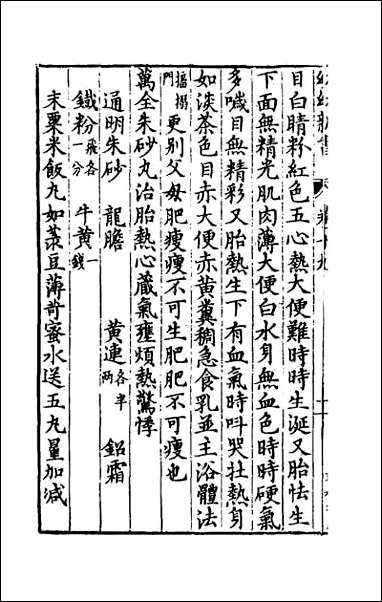 幼幼新書 卷十九
目白睛粉紅色五心熱大便難時時生涎又胎怯生
下面無精光肌肉薄大便白水身無血色時時硬氣
多噦目無精彩又胎熱生下有血氣時叫哭壯熱身
如淡茶色目赤大便赤黃糞稠急食乳並主浴體法
搐搦門更別父母肥瘦瘦不可生肥肥不可瘦也
萬全朱砂丸治胎熱心藏氣壅煩熱驚悸
通明朱砂 龍膽 黃連各半兩 鉛霜
鐵粉飛各一分 牛黃一錢
末粟米飯丸如菉豆薄荷蜜水送五丸量加減